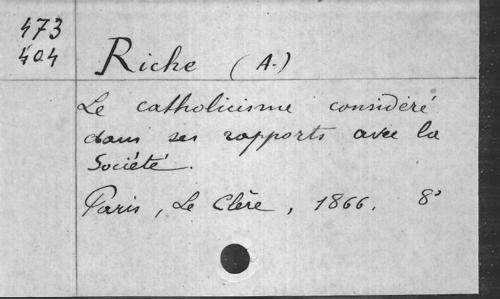 473
404
Riche (A.)
Le catholicisme considéré
dans ses rapports avec la
Société.
Paris, Le Clère, 1866. 8°